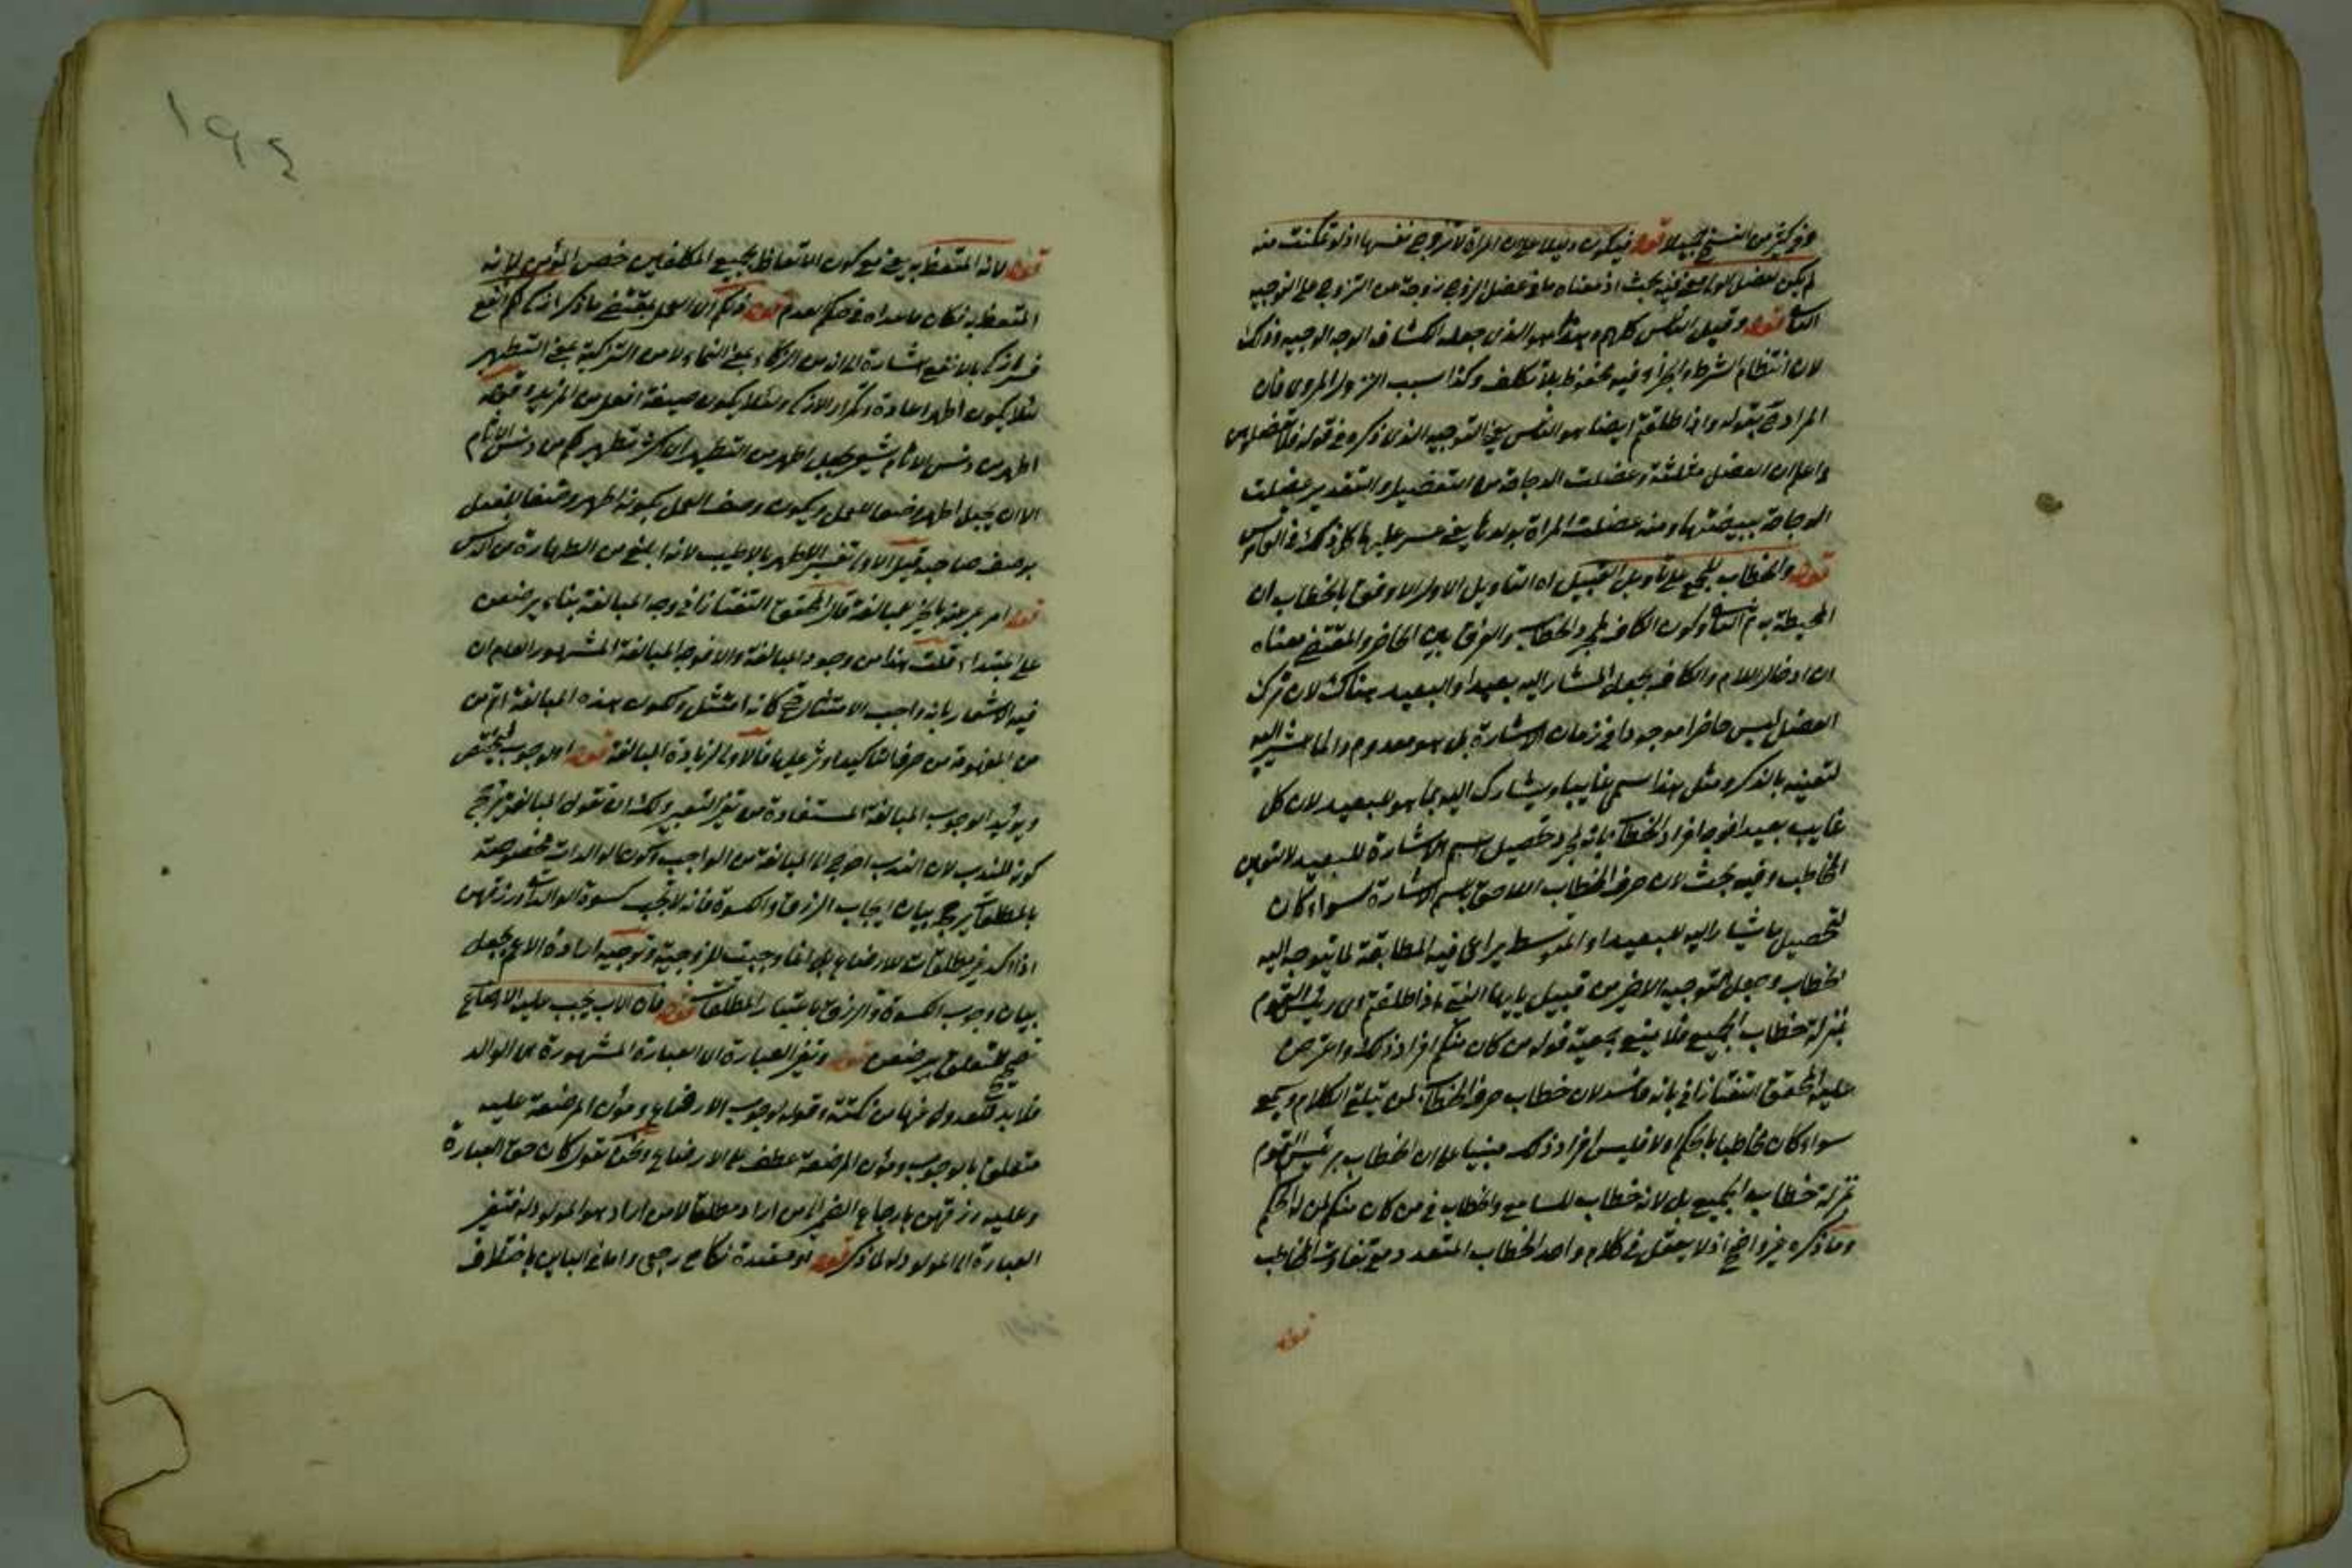 وفي كثير من النسخ قوله فيكون دليلا على ان المراة لا تزوج نفسها اذ لو تمكنت منه
لم يكن لعضل الولي معنى فيه بحث اذ معناه عضل الزوج زوجة من التزوج على التوجيه
قوله وقيل الناس كلهم وهذا هو الذي جعله الكشاف الوجه الوجيه وذلك
لان انتظام الشرط والجزاء فيه محفوظ بلا تكلف وكذا سبب النزول المروي فان
المراد بقوله واذا طلقتم ايضا هو الناس على التوجيه الذي ذكره في قوله فلا تعضلوهن
واعلم ان العضل مثلثة وعضلت الدجاجة من التفعيل والتقدير عضلت
الدجاجة ببيضتها ومنه عضلت المراة بولدها يعني عسر عليها كل ذلك في القاموس
قوله والخطاب للجمع على تأويل القبيل او التأويل الاول الاوفق بالخطاب ان
وكون الكاف لمجرد الخطاب والفرق بين الحاضر والمقتضي معناه
ان ادخال اللام والكاف يجعل المشار اليه بعيدا والبعيد هناك لان ترك
العضل ليس حاضرا موجودا في زمان الاشارة بل هو معدوم وانما يشير اليه
لتعينه بالذكر ومثل هذا يسمى غايبا ويشارك اليه بما هو للبعيد لان كل
غايب بعيد افراد الخطاب بانه لمجرد تحصيل اسم الاشارة للبعيد لا لتعيين
المخاطب وفيه بحث لان حرف الخطاب اللاحق باسم الاشارة سواء كان
لتحصيل ما يشار اليه للبعيد او المتوسط يراعى فيه المطابقة لما يتوجه اليه
الخطاب وجعل التوجيه الاخر من قبيل يا ايها النبي اذا طلقتم اي رئيس القوم
بمنزلة خطاب الجميع فلا ينبغي بجمعية قوله من كان منكم افراد ذلك واعترض
عليه المحقق التفتازاني بانه فاسد لان خطاب حرف الخطاب لمن يتلقى الكلام ويسمع
سواء كان مخاطبا بالحكم او لا فليس افراد ذلك مبنيا على ان الخطاب برئيس القوم
بمنزلة خطاب الجميع بل لانه خطاب للسامع والخطاب في من كان منكم لمن له الحكم
وما ذكره غير واضح اذ لا يعقل في كلام واحد الخطاب المتعدد مع تفاوت المخاطب
قوله
١٩٤
قوله لانه المتعظ به يعني مع كون الاتعاظ لجميع المكلفين خص المؤمن لانه
المتعظ به فكان ما عداه في حكم العدم قوله ذلكم اي العمل بمقتضى ما ذكر ازكى لكم انفع
فسر ازكى بالانفع اشارة الى انه من الزكاء بمعنى النماء لا من التزكية بمعنى التطهير
لئلا يكون اطهر اعادة وتكرار الازكى ولئلا يكون صيغة افعل من المزيد قوله
اطهر من دنس الاثام يشعر بجعل اطهر من التطهير اي اكثر تطهيركم من دنس الاثام
الا ان يجعل اطهر وصفا للعمل ويكون وصف العمل بكونه اطهر وصفا للفعل
بوصف صاحبه قيل الاولى تفسير الاطهر بالاطيب لانه ابلغ من الطهارة من الدنس
قوله امر عبر عنه بالخبر للمبالغة قال المحقق التفتازاني وجه المبالغة بناء يرضعن
على المبتداء قلت هذا من وجوه المبالغة والا فوجه المبالغة المشهور العام ان
فيه الاشعار بانه واجب الامتثال كانه امتثل ولكون هذه المبالغة اتم من
من المفهومة من حرف التأكيد اوثر عليها لزيادة المبالغة قوله او الوجوب فيختص
ويؤيد الوجوب المبالغة المستفادة من تغيير التعبير ولك ان تقول المبالغة ترجح
كونه للندب لان الندب احوج الى المبالغة من الواجب وكون الوالدات مخصوصة
بالمطلقات يرجحه بيان ايجاب الرزق والكسوة فانه لا تجب كسوة الوالدات ورزقهن
اذا كن غير مطلقات للارضاع بل انما وجبت للزوجية وتوجيه ارادة الاعم بجعل
بيان وجوب الكسوة والرزق باعتبار المطلقات قوله فان الاب يجب عليه الارضاع
تصحيح للتعلق بيرضعن قوله وتغيير العبارة اي العبارة المشهورة هي الوالد
فلا بد للعدول عنها من نكتة وقوله لوجوب الارضاع ومؤن المرضعة عليه
متعلق بالوجوب ومؤن المرضعة عطف على الارضاع ونحن نقول كان حق العبارة
وعليه رزقهن بارجاع الضمير الى من اراد مطلقا لا من اراد هو المولود له فتغير
العبارة الى المولود له لما ذكر قوله او معتدة نكاح رجعي واما في الباين باختلاف